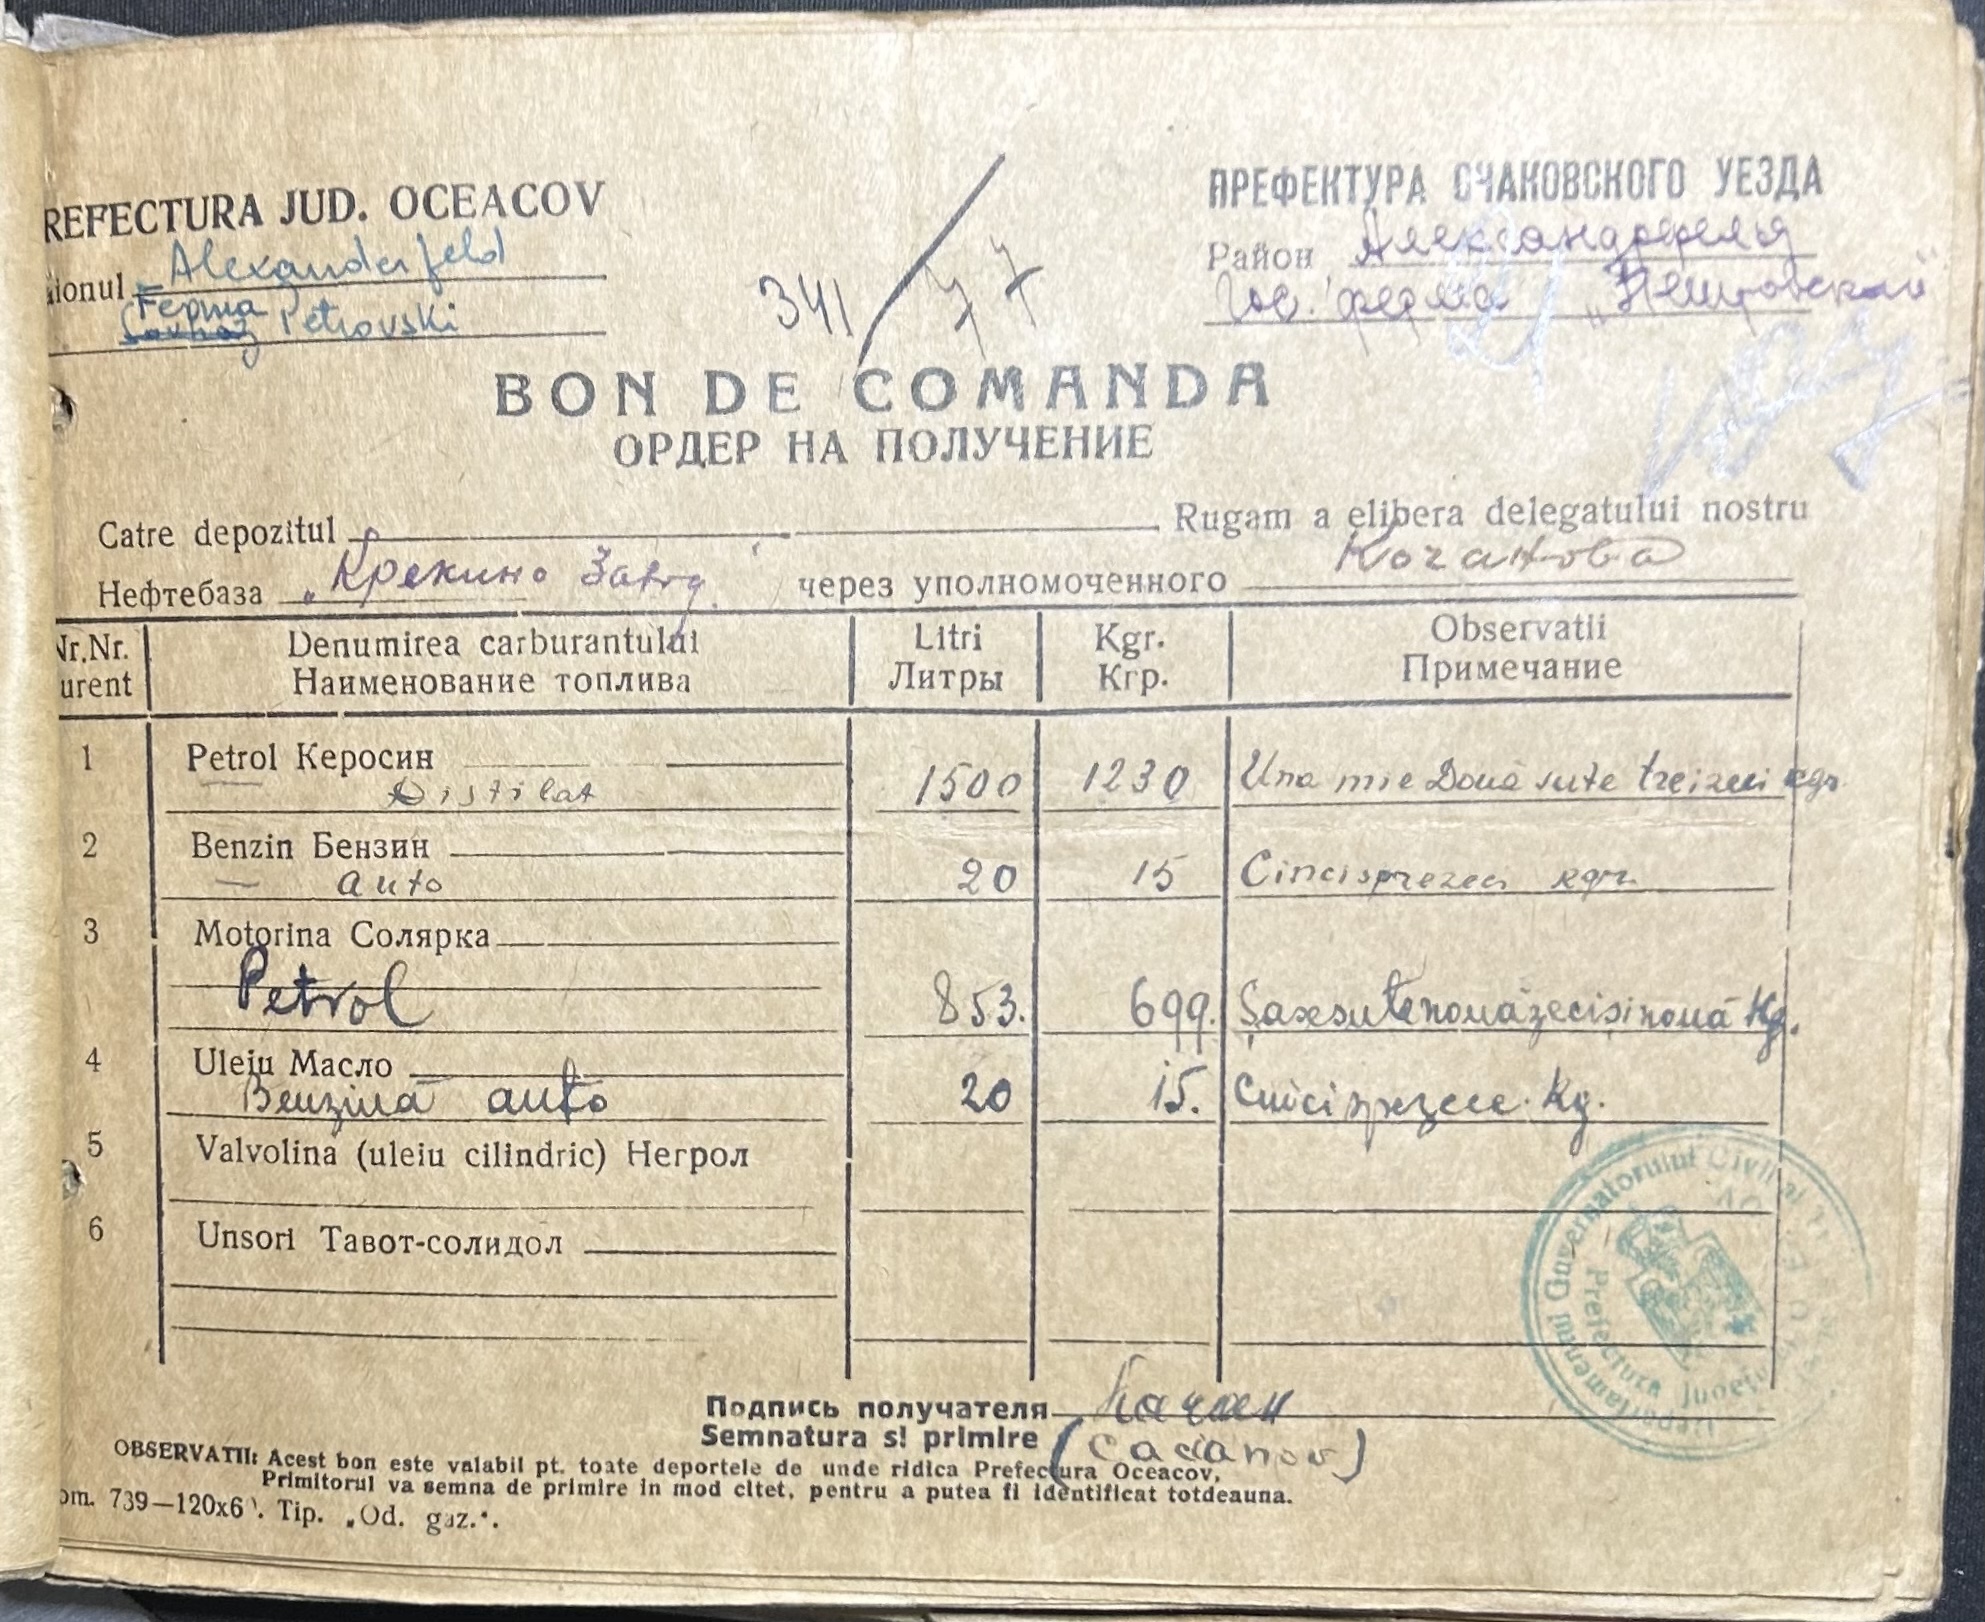 REFECTURA JUD. OCEACOV
ПРЕФЕКТУРА ОЧАКОВСКОГО УЕЗДА
ionul Alexanderfeld
Район Александрфельд
Ферма
Sovhoz Petrovski
Гос. ферма „Петровский"
341/77
BON DE COMANDA
ОРДЕР НА ПОЛУЧЕНИЕ
Catre depozitul Rugam a elibera delegatului nostru
Нефтебаза „Крекинг Завод" через уполномоченного Качанова
Nr.Nr. Denumirea carburantului Litri Kgr. Observatii
urent Наименование топлива Литры Кгр. Примечание
1 Petrol Керосин
Distilat 1500 1230 Una mie Două sute treizeci kgr
2 Benzin Бензин
auto 20 15 Cincisprezeci kgr.
3 Motorina Солярка
Petrol 853. 699. Șasesutenouăzecișinouă Kg.
4 Uleiu Масло
Benzină auto 20 15. Cincisprezece Kg.
5 Valvolina (uleiu cilindric) Негрол
6 Unsori Тавот-солидол
Подпись получателя
Semnatura si primire (Cacianov)
OBSERVATII: Acest bon este valabil pt. toate deportele de unde ridica Prefectura Oceacov,
Primitorul va semna de primire in mod citet, pentru a putea fi identificat totdeauna.
om. 739—120x6 . Tip. „Od. gaz.".
Guvernatorului Civil al
Prefectura Judetului